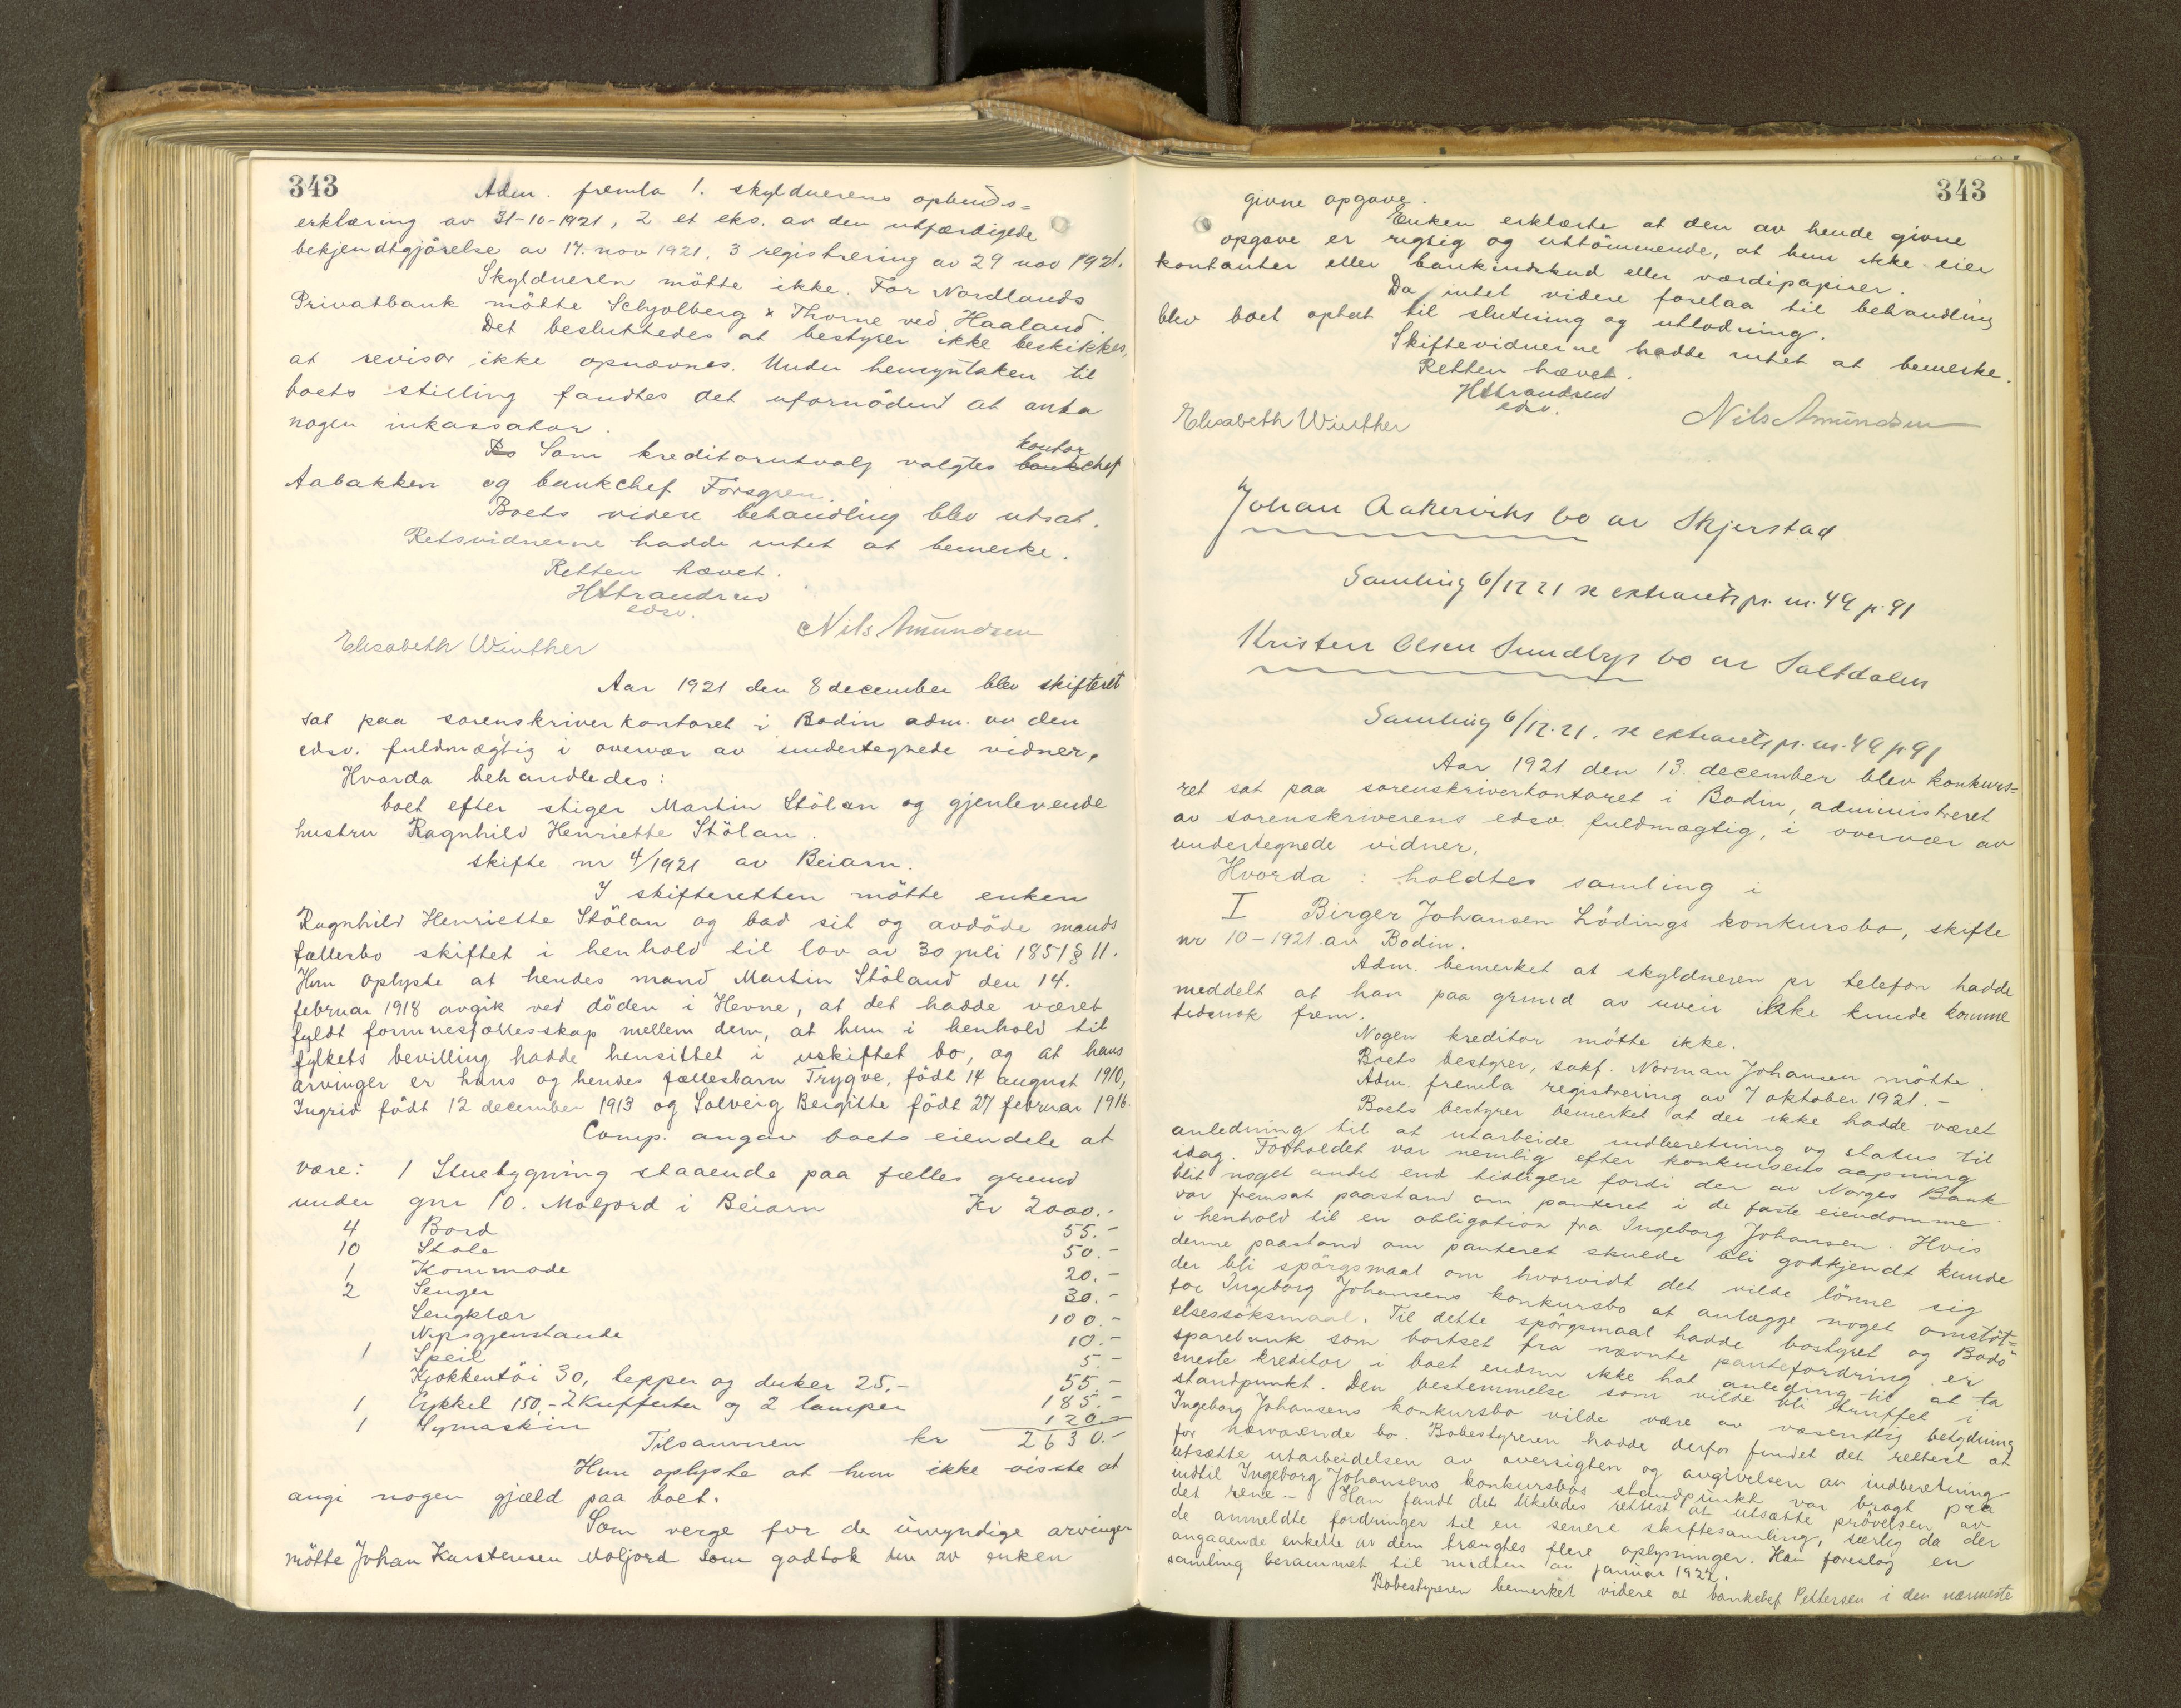 343
Adm. fremla 1. skyldnerens opbuds=
erklæring av 31-10-1921, 2 et eks. av den utfærdigede
bekjendtgjörelse av 17. nov 1921, 3 registrering av 29 nov 1921.
Skyldneren mötte ikke. For Nordlands
Privatbank mötte Schjolberg & Thorne ved Haaland.
Det besluttedes at bestyrer ikke beskikkes,
at revisor ikke opnævnes. Under hensyntaken til
boets stilling fandtes det ufornödent at anta
nogen inkassator.
Som kreditorutvalg valgtes kontor chef
Aabakken og bankchef Forsgren.
Boets videre behandling blev utsat.
Retsvidnerne hadde intet at bemerke.
Retten hævet.
HStrandrud
edsv.
Elisabeth Winther Nils Amundsen
Aar 1921 den 8 december blev skifteret
sat paa sorenskriverkontoret i Bodin adm. av den
edsv. fuldmægtig i overvær av undertegnede vidner,
Hvorda behandledes:
boet efter stiger Martin Stölan og gjenlevende
hustru Ragnhild Henriette Stölan.
skifte nr 4/1921 av Beiarn.
I skifteretten mötte enken
Ragnhild Henriette Stölan og bad sit og avdöde mands
fællesbo skiftet i henhold til lov av 30 juli 1851 § 11.
Hun oplyste at hendes mand Martin Stöland den 14.
februar 1918 avgik ved döden i Hevne, at det hadde været
fyldt formuesfællesskap mellem dem, at hun i henhold til
fylkets bevilling hadde hensittet i uskiftet bo, og at hans
arvinger er hans og hendes fællesbarn Trygve, födt 14 august 1910,
Ingrid födt 12 december 1913 og Solveig Beigitte födt 27 februar 1916.
Comp. angav boets eiendele at
være: 1 Stuebygning staaende paa fælles grund
under gnr 10. Moljord i Beiarn Kr 2000.-
4 Bord 55.-
10 Stole 50.-
1 Kommode 20.-
2 Senger 30.-
Sengklær 100.-
Nipsgjenstande 10.-
1 Speil 5.-
Kjökkentöi 30, tepper og duker 25,- 55.-
1 Cykkel 150,- 2 Kufferter og 2 lamper 185.-
1 Symaskin 120.-
Tilsammen kr 2630.-
Hun oplyste at hun ikke visste at
angi nogen gjæld paa boet.
Som verge for de umyndige arvinger
mötte Johan Karstensen Moljord som godtok den av enken
343
givne opgave.
Enken erklærte at den av hende givne
opgave er rigtig og uttömmende, at hun ikke eier
kontanter eller bankindskud eller værdipapirer.
Da intet videre forelaa til behandling
blev boet optat til slutning og utlodning.
Skiftevidnerne hadde intet at bemerke.
Retten hævet.
HStrandrud
edsv.
Elisabeth Winther Nils Amundsen
Johan Aakerviks bo av Skjerstad
Samling 6/12 21 se extraretspr. nr. 49 p. 91
Kristen Olsen Sundbys bo av Saltdalen
Samling 6/12.21. se extraretspr. nr. 49 p 91
Aar 1921 den 13. december blev konkurs=
ret sat paa sorenskriverkontoret i Bodin, administreret
av sorenskriverens edsv. fuldmægtig, i overvær av
undertegnede vidner.
Hvorda: holdtes samling i
I Birger Johansen Lödings konkursbo, skifte
nr 10-1921 av Bodin.
Adm. bemerket at skyldneren pr telefon hadde
meddelt at han paa grund av uveir ikke kunde komme
tidsnok frem.
Nogen kreditor mötte ikke.
Boets bestyrer, sakf. Norman Johansen mötte.
Adm. fremla registrering av 7 oktober 1921.-
Boets bestyrer bemerket at der ikke hadde været
anledning til at utarbeide indberetning og status til
idag. Forholdet var nemlig efter konkursens aapning
blit noget andet end tidligere fordi der av Norges Bank
var fremsat paastand om panteret i de faste eiendomme
i henhold til en obligation fra Ingeborg Johansen. Hvis
denne paastand om panteret skulde bli godkjendt kunde
der bli spörgsmaal om hvorvidt det vilde lönne sig
for Ingeborg Johansens konkursbo at anlægge noget omstöt=
elsessöksmaal. Til dette spörgsmaal hadde bostyret og Bodö
sparebank som bortset fra nævnte pantefordring er
eneste kreditor i boet endnu ikke hat anleding til at ta
standpunkt. Den bestemmelse som vilde bli truffet i
Ingeborg Johansens konkursbo vilde være av væsentlig betydning
for nærværende bo. Bobestyreren hadde derfor fundet det rettest at
utsætte utarbeidelsen av oversigten og avgivelsen av indberetning
indtil Ingeborg Johansens konkursbos standpunkt var bragt paa
det rene.- Han fandt det likeledes rettest at utsætte prövelsen av
de anmeldte fordringer til en senere skiftesamling, særlig da der
angaaende enkelte av dem trængtes flere oplysninger. Han foreslog en
samling berammet til midten av januar 1922.
Bobestyreren bemerket videre at bankchef Pettersen i den nærmeste